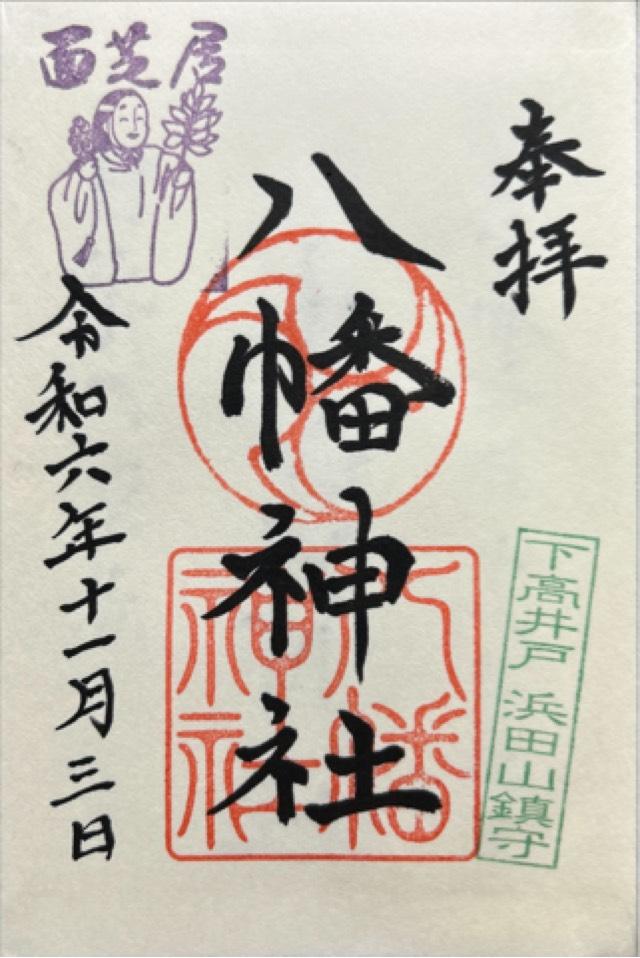 奉拝
下高井戸 浜田山鎮守
八幡神社
八幡神社
面芝居
令和六年十一月三日